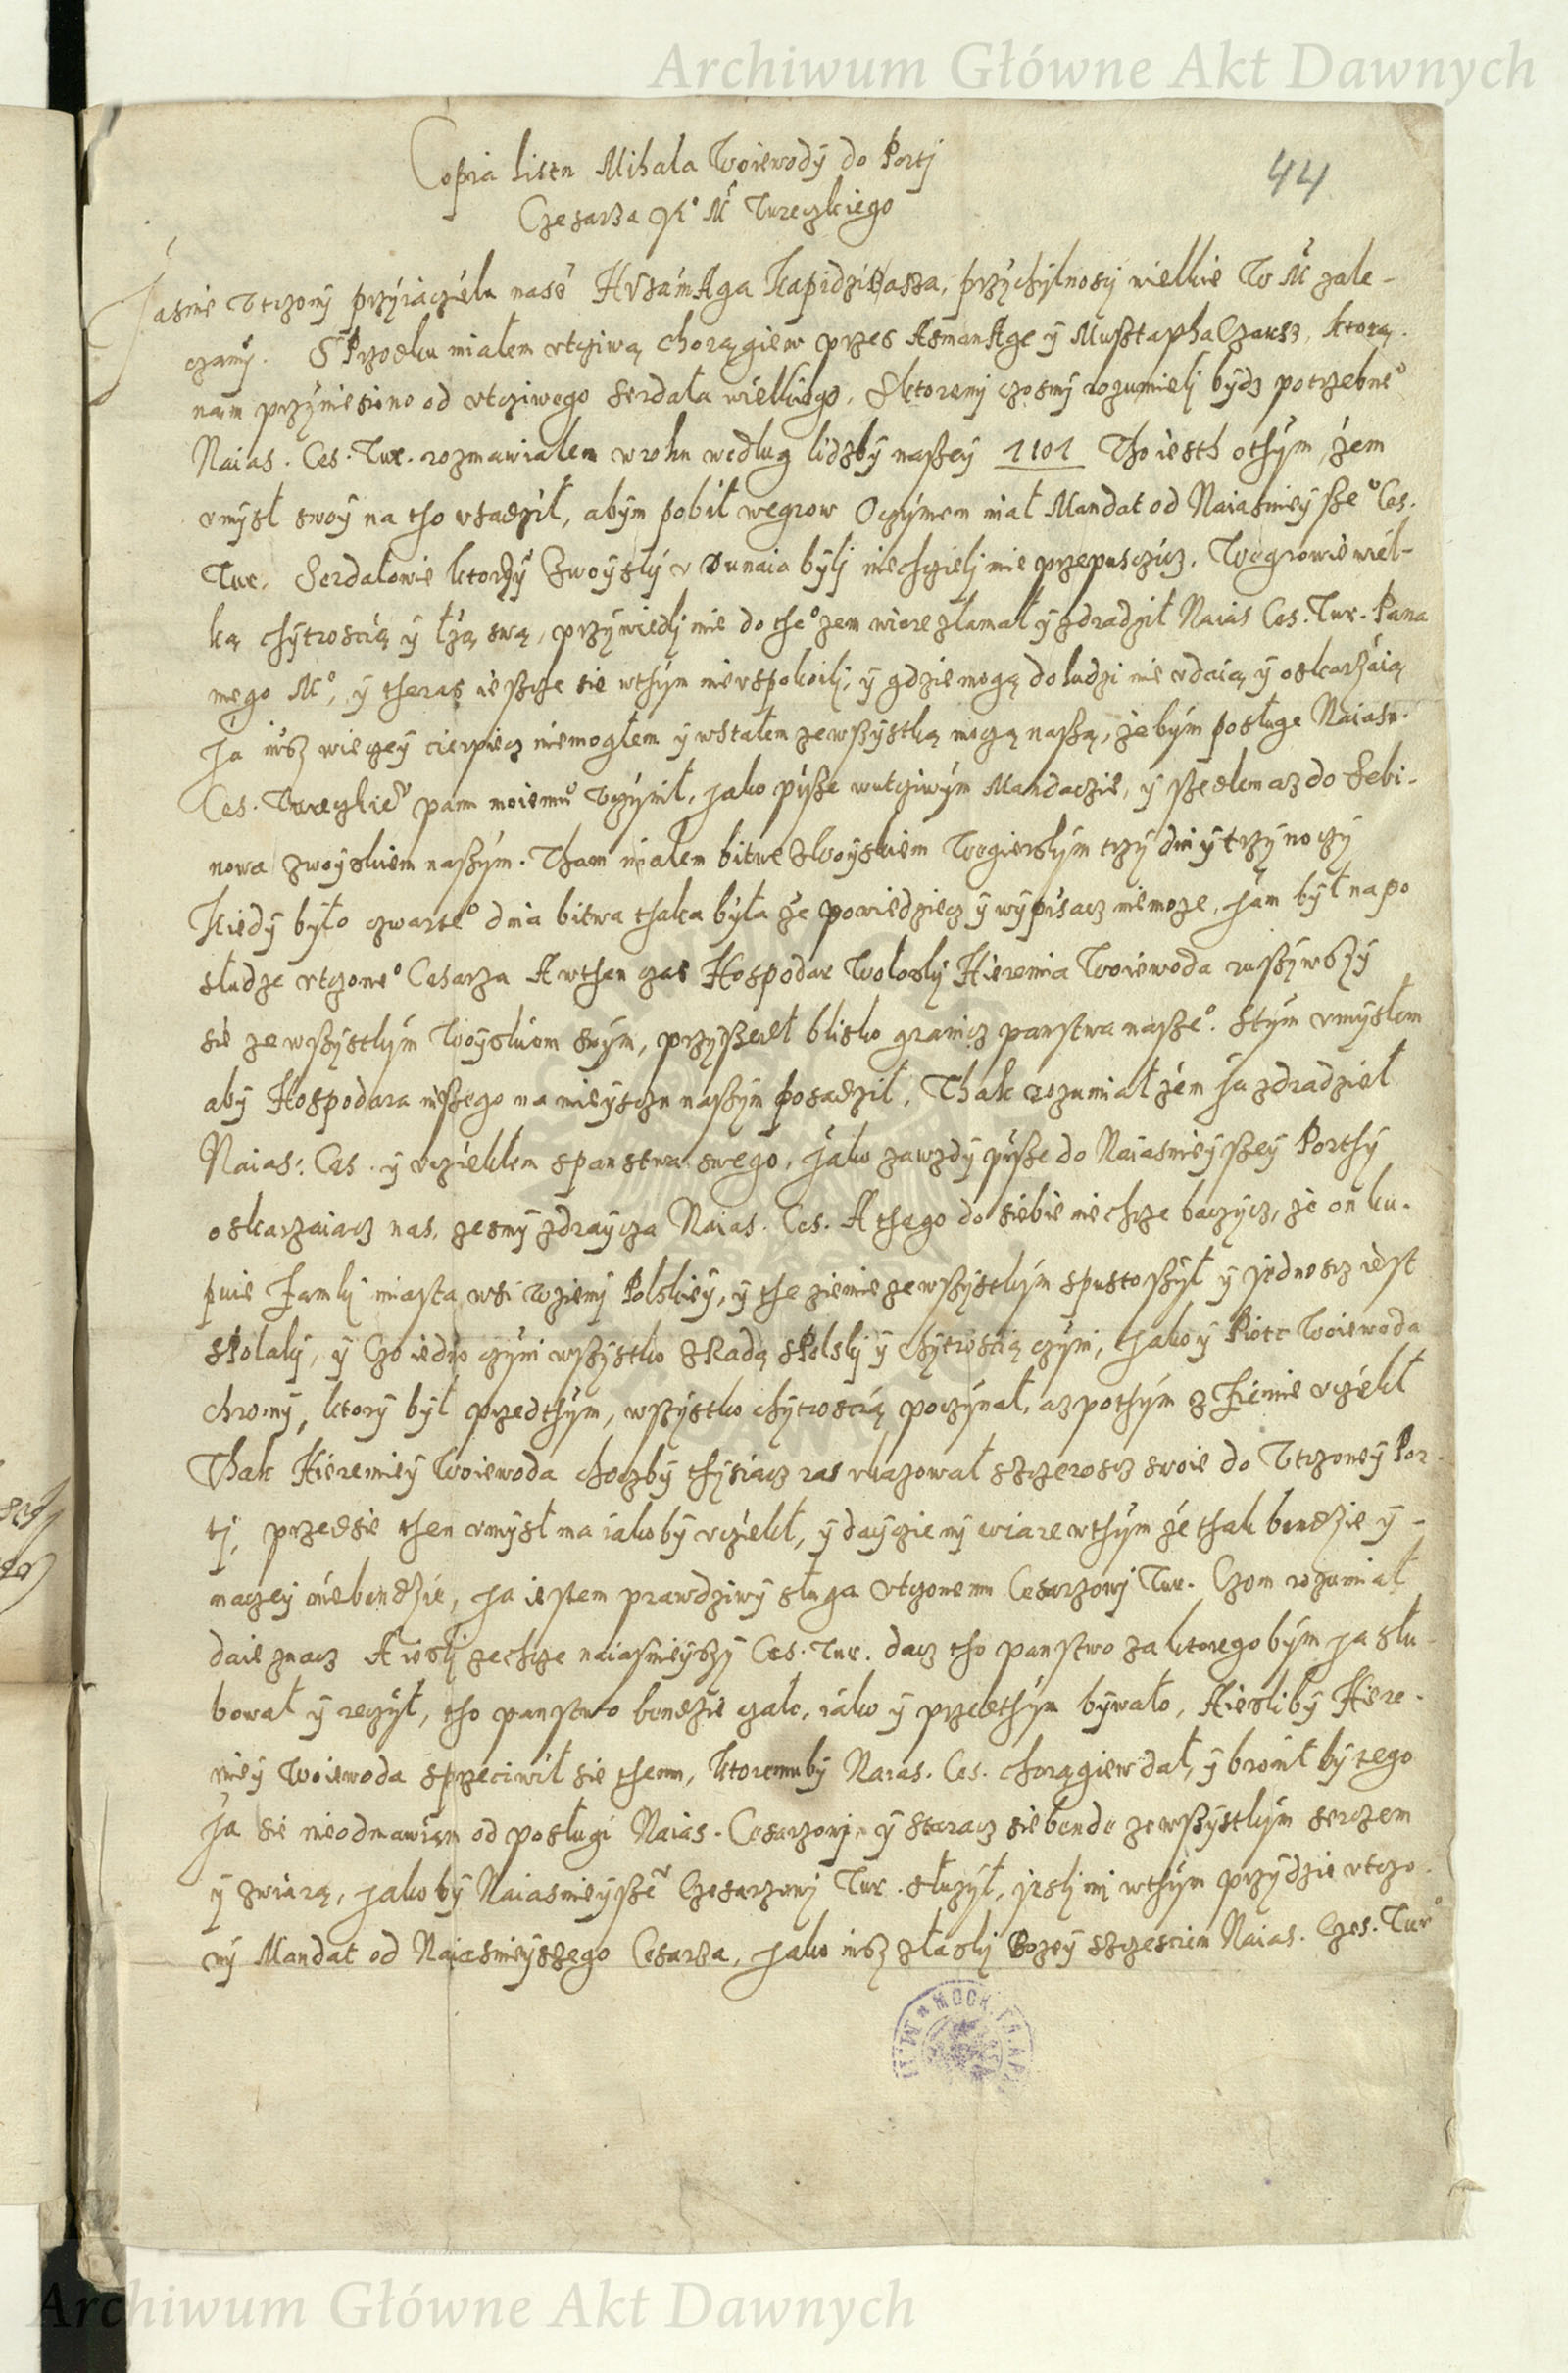 Archiwum Główne Akt Dawnych
44
Copia listu Mihala Woiewody do Portj
Czesarza Jº Mci Tureczkiego
Jasnie Vtczony przyiaczielu nasz HVsaimAga Kapidzibassa, przychylnosci wielkie W Mci zale-
czamy. S Przodku miałem vtcziwą chorągiew przes AsmanAge y Mustapha Czausz, ktorą
nam przyniesiono od vtcziwego Serdala wielkiego, S ktoremi czosmy rozumielj bydz potrzebneº
Naias. Ces. Tur. rozmawialem w roku wedlug lidzby naszey 1101 Tho iesth o thym żem
vmysł swoy na tho vsadził, abym pobił wegrow O czymem miał Mandat od Naiasnieyszeº Ces.
Tur. Serdalowie ktorzy Zwoysky v Dunaia bylj niechcielj mie przepusczicz. Węgrowie wiel-
ką chytroscią y łżą swą, przywiedlj mie do theº żem wiare złamał y zdradził Naias Ces. Tur. Pana
mego Mº, y theras iescze sie w thym nie vspokoilj, y gdzie mogą do ludzi nie vdaią y oskarżaią
Ja iusz wieczey cierpiecz niemogłem y wstałem ze wszystką moczą naszą, żebym posługe Naiasn.
Ces. Tureczkieº panu moiemu vczynił, jako pisze w utcziwym Mandaczie, y szedlem az do Sebi-
nowa z woyskiem naszym. Tham miałem bitwe z Woyskiem Wegierskym trzy dni y trzy noczy
Kiedy było czwarteº dnia bitwa thaka była że powiedziecz y wypisacz niemoże, jam był na po
sludze vtczoneº Cesarza A w then czas Hospodar Wołosky Hieremia Woiewoda ruszywszy
sie ze wszystkym Woyskiem swym, przyszedł blisko granicz panstwa naszeº. S tym vmysłem
aby Hospodara inszego na mieysczu naszym posadził, Thak rozumiał żem ja zdradzieł
Naias: Ces. y vciekłem s panstwa swego, jako zawzdy pisze do Naiasnieyszey Porthy
oskarzaiacz nas, zesmy zdraycza Naias. Ces. A thego do siebie nie chcze baczycz, że on ku-
puie Zamkj miasta wsi w ziemj Polskiey, y the ziemie ze wszystkym spustoszył y jednoscz iest
s Polaky, y czo iedno czyni wszystko z Radą s Polskj y chytroscią czyni, jako y Piotr Woiewoda
chromy, ktory był przedthym, wszystko chytroscią poczynał, az pothym z Ziemie vciekł
Thak Hieremiey Woiewoda choczby thysiacz ras vkazował szczeroscz swoie do Vtczoney Por-
tj, przedsie then vmysł ma iakoby vciekł, y dayczie my wiare w thym że thak bendzie y-
naczey niebendzie, ja iestem prawdziwy sługa vtczonemu Cesarzowj Tur. Czom rozumiał
daie znacz A ieslj zechcze naiasnieyszy Ces. Tur. dacz tho panstwo za ktoregobym ja słu-
bował y reczył, tho panstwo bendzie całe, iako y przedthym bywało, A iesliby Hiere-
miey Woiewoda sprzeciwił sie themu, ktoremuby Naias. Ces. chorągiew dał, y bronił by tego
Ja sie nieodmawiam od posługi Naias. Cesarzowj, y staracz sie bende ze wszystkym serczem
y z wiarą, jakoby Naiasnieyszeº Czesarzowj Tur. służył, jeslj mj w thym przydzie vtczo-
ny Mandat od Naiasnieyszego Cesarza, jako iusz z łaskj Bozey sczesciem Naias. Czes. Turº
Archiwum Główne Akt Dawnych